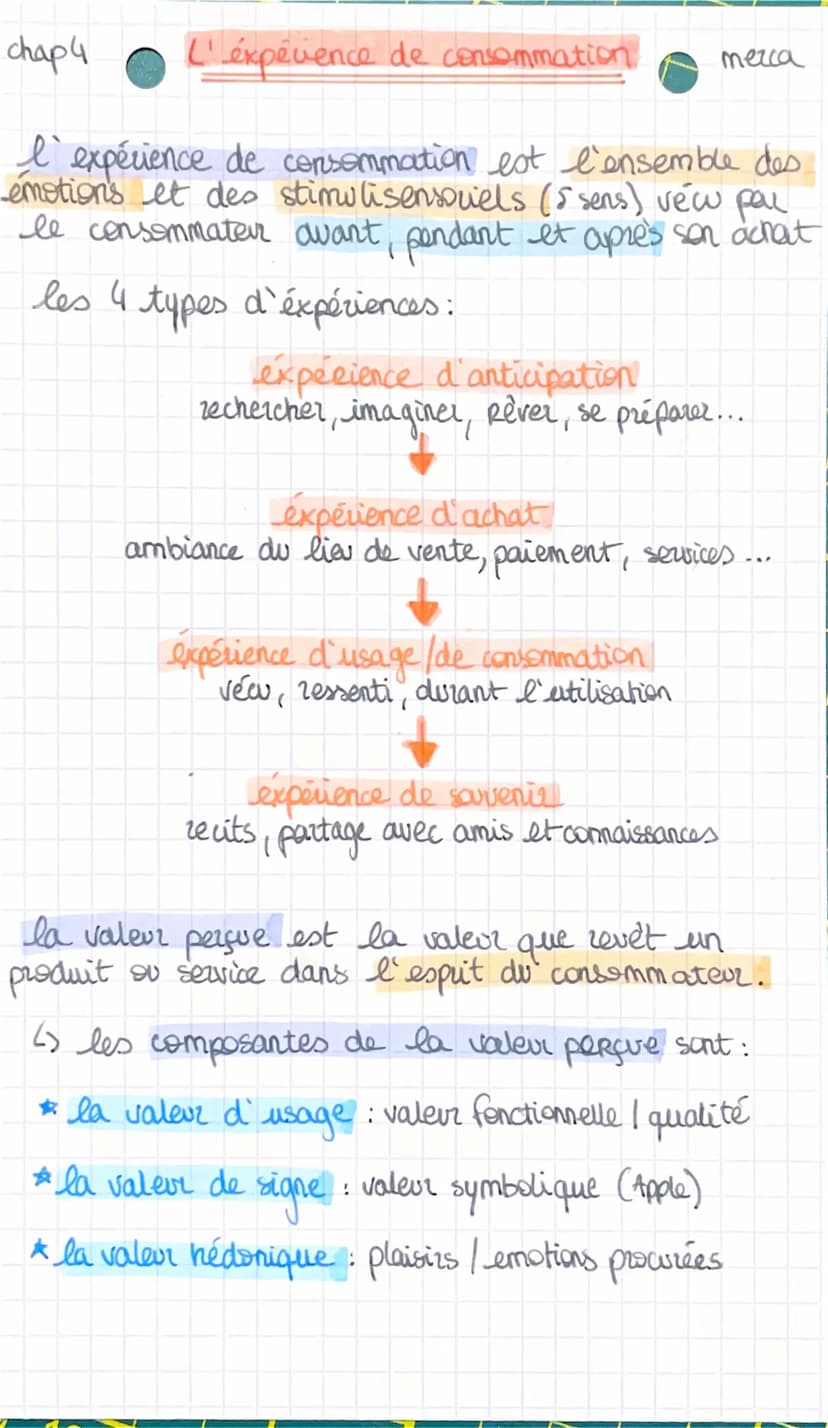 chap4 L'éxpérience de consommation merca
l'expérience de consommation est l'ensemble des
émotions et des stimulisensoriels (5 sens) vécu par
le consommateur avant, pendant et après son achat
les 4 types d'éxpériences :
éxpérience d'anticipation
rechercher, imaginer, rêver, se préparer...
éxpérience d'achat
ambiance du lieu de vente, paiement, services ...
éxpérience d'usage / de consommation
vécu, ressenti, durant l'utilisation
éxpérience de souvenir
recits, partage avec amis et connaissances
la valeur perçue est la valeur que revêt un
produit ou service dans l'esprit du consommateur.
↳ les composantes de la valeur perçue sont :
★ la valeur d'usage : valeur fonctionnelle / qualité
★ la valeur de signe : valeur symbolique (Apple)
★ la valeur hédonique : plaisirs / emotions procurées